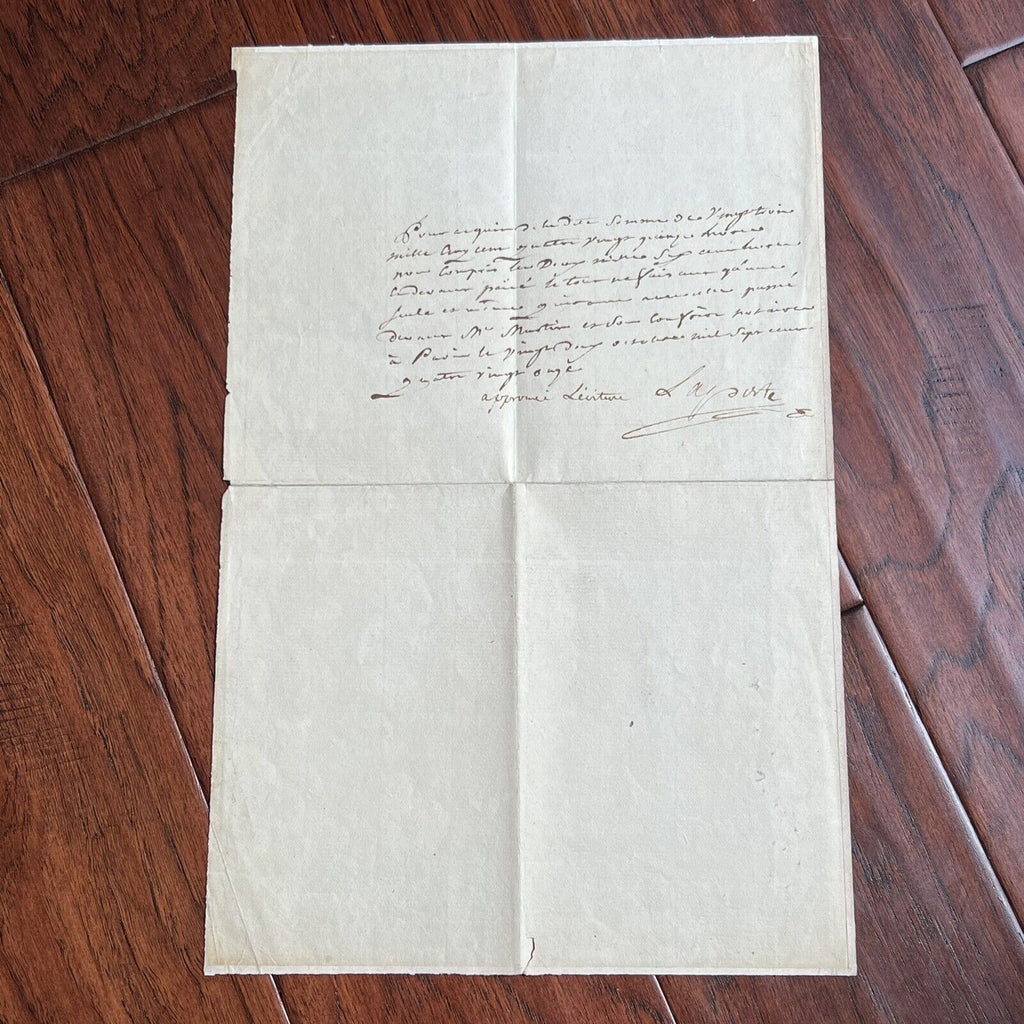 Pour acquit de la dite Somme de Vingt trois
mille Cinq cent quatre Vingt quinze livres
non Compris les Deux mille Six cent livres
le tout ne faisant qu'une
seule et même quittance avec celle passé
devant Me Martin et Son Confrère notaires
à Paris le Vingt Deux octobre mil Sept cent
quatre Vingt onze
approuvé L'écriture Laporte